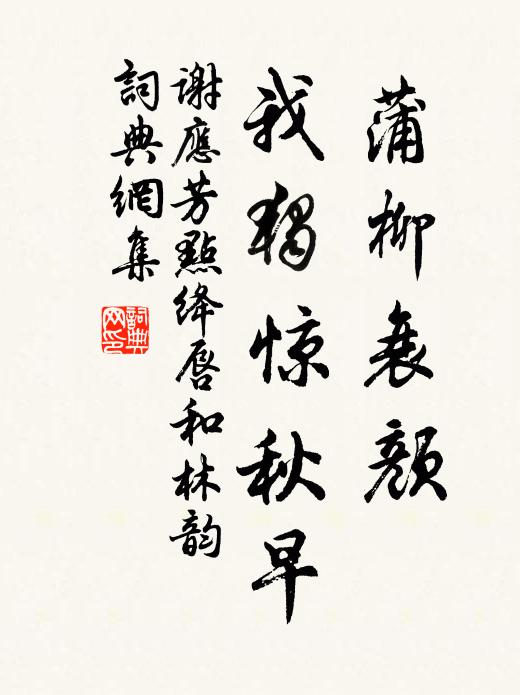 蒲柳衰颜
我獨惊秋早
谢應芳點绛唇和林韵
詞典網集
詞典网印